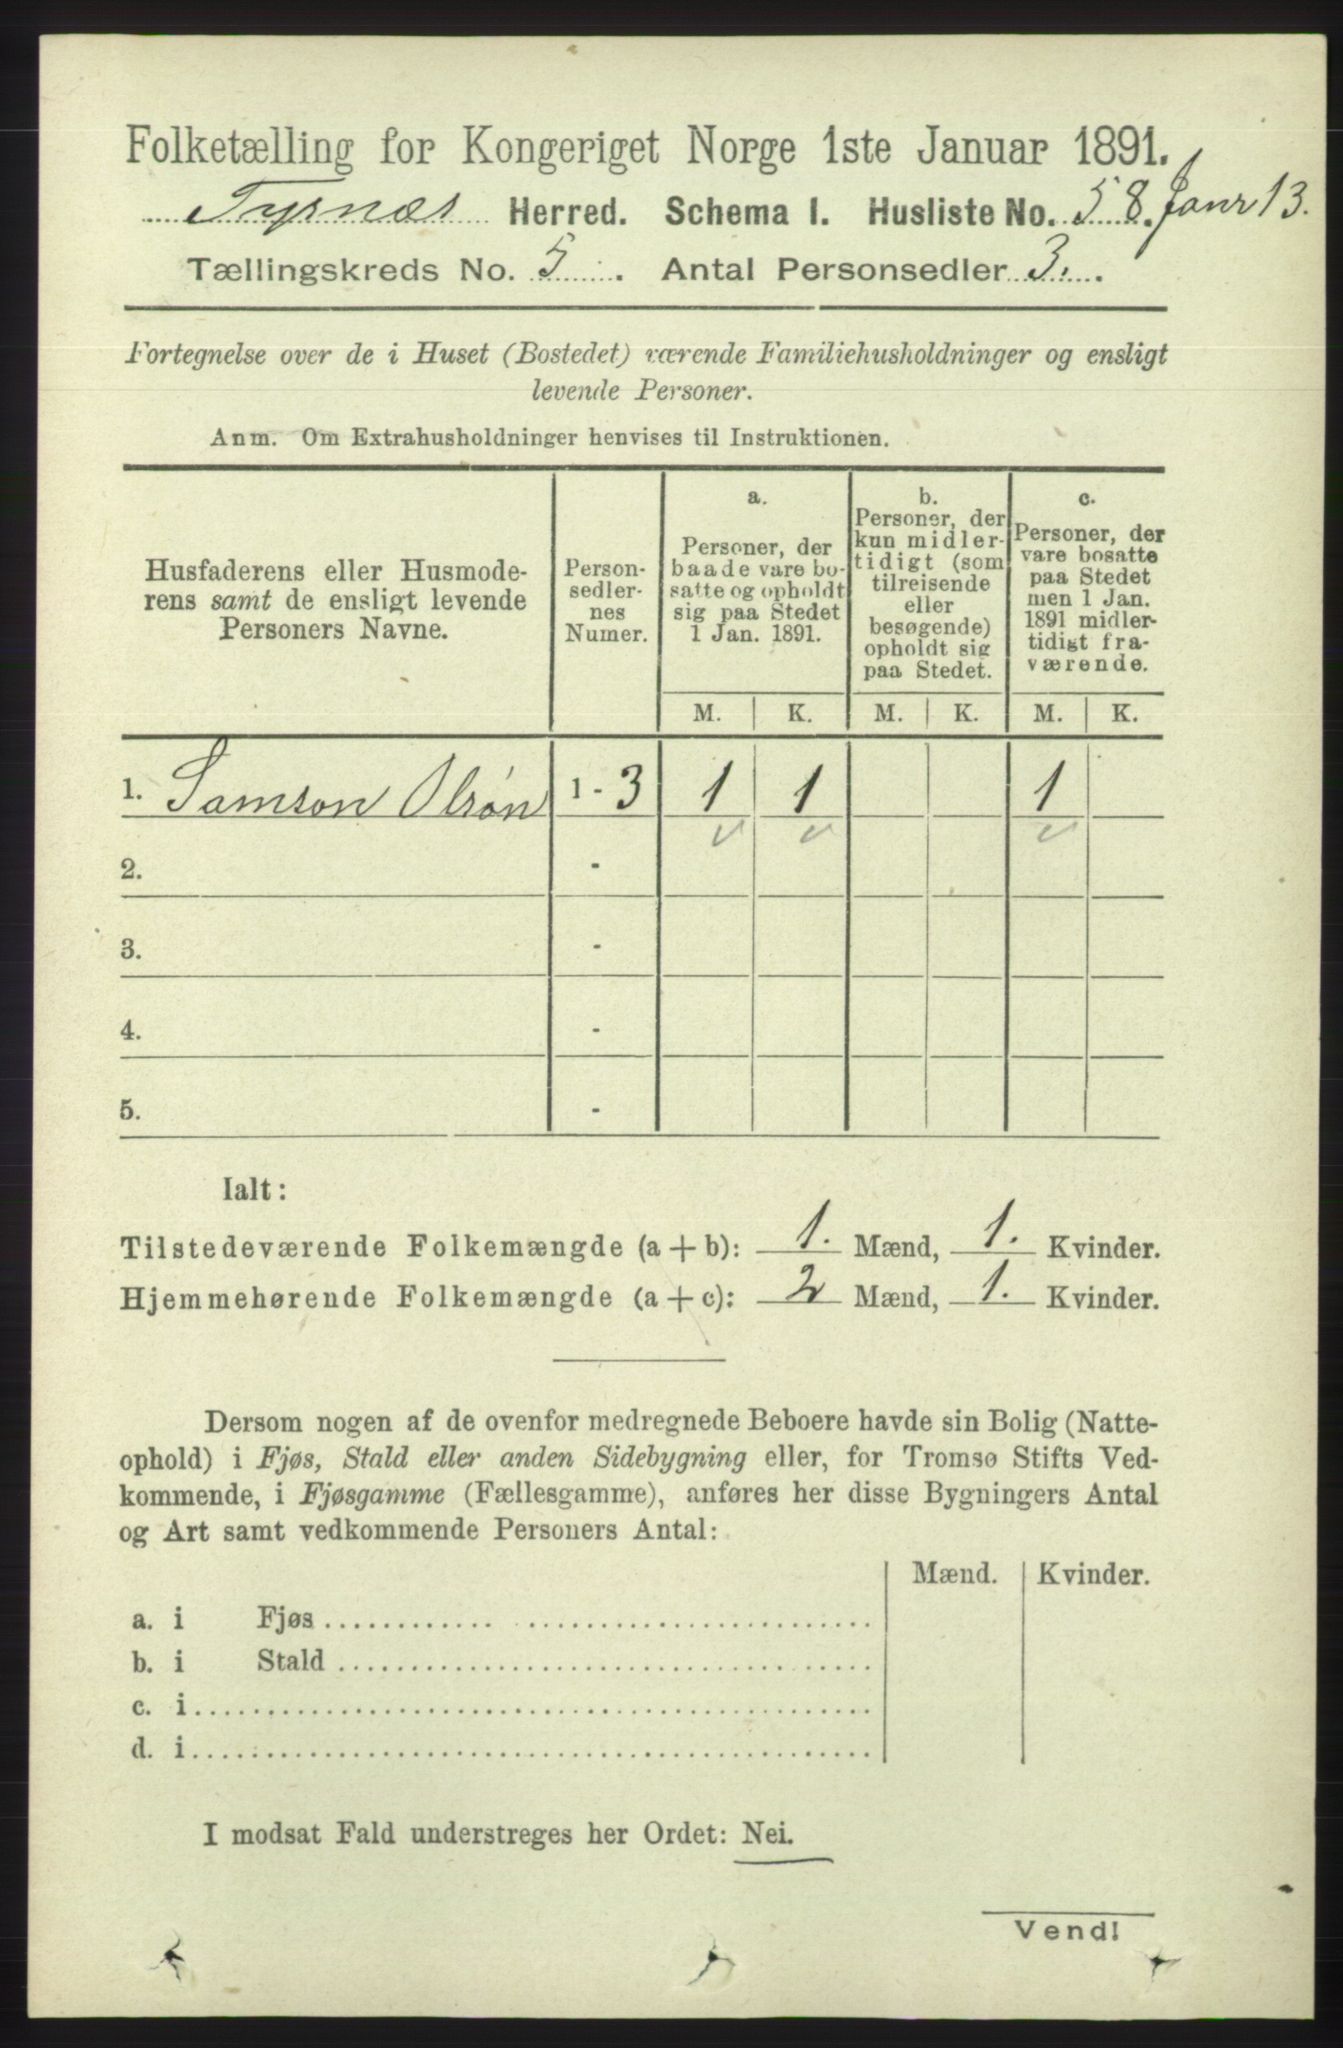 Folketælling for Kongeriget Norge 1ste Januar 1891.
Tysnæs Herred. Schema I. Husliste No. 58. Janr 13.
Tællingskreds No. 5. Antal Personsedler 3.
Fortegnelse over de i Huset (Bostedet) værende Familiehusholdninger og ensligt
levende Personer.
Anm. Om Extrahusholdninger henvises til Instruktionen.
Husfaderens eller Husmode-
rens samt de ensligt levende
Personers Navne.
Person-
sedler-
nes
Numer.
a.
Personer, der
baade vare bo-
satte og opholdt
sig paa Stedet
1 Jan. 1891.
b.
Personer, der
kun midler-
tidigt (som
tilreisende
eller
besøgende)
opholdt sig
paa Stedet.
c.
Personer, der
vare bosatte
paa Stedet
men 1 Jan.
1891 midler-
tidigt fra-
værende.
M. K. M. K. M. K.
1. Samson Olsøn 1 - 3 1 1 1
2. -
3. -
4. -
5. -
Ialt:
Tilstedeværende Folkemængde (a + b): 1. Mænd, 1. Kvinder.
Hjemmehørende Folkemængde (a + c): 2 Mænd, 1. Kvinder.
Dersom nogen af de ovenfor medregnede Beboere havde sin Bolig (Natte-
ophold) i Fjøs, Stald eller anden Sidebygning eller, for Tromsø Stifts Ved-
kommende, i Fjøsgamme (Fællesgamme), anføres her disse Bygningers Antal
og Art samt vedkommende Personers Antal:
Mænd. Kvinder.
a. i Fjøs
b. i Stald
c. i
d. i
I modsat Fald understreges her Ordet: Nei.
Vend!